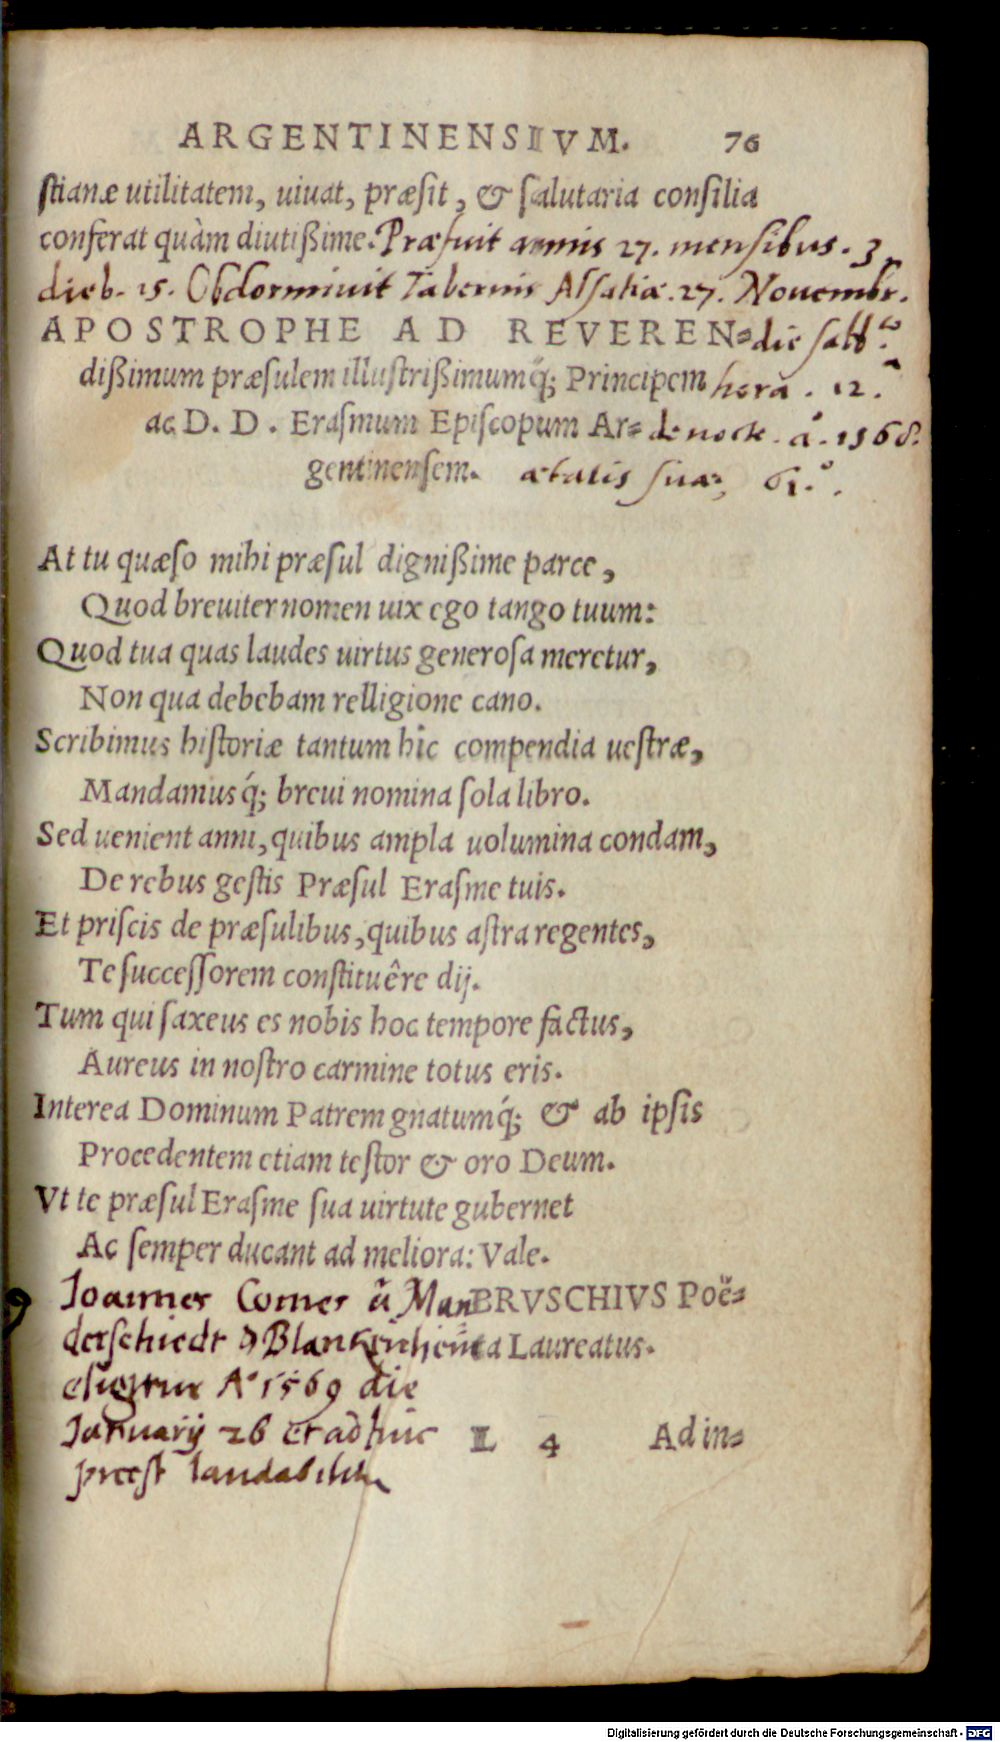 ARGENTINENSIVM. 76
stianæ utilitatem, uiuat, præsit, & salutaria consilia
conferat quàm diutißime. Præfuit annis 27. mensibus. 3
dieb. 15. Obdormiuit Tabernis Alsatiæ. 27. Nouembr.
APOSTROPHE AD REVEREN= die sabb.
dißimum præsulem illustrißimumq́; Principem hora. 12.
ac D. D. Erasmum Episcopum Ar= de nocte. aº. 1568.
gentinensem. ætatis suæ, 61.º.
At tu quæso mihi præsul dignißime parce,
Quod breuiter nomen uix ego tango tuum:
Quod tua quas laudes uirtus generosa meretur,
Non qua debebam relligione cano.
Scribimus historiæ tantum hîc compendia uestræ,
Mandamusq́; breui nomina sola libro.
Sed uenient anni, quibus ampla uolumina condam,
De rebus gestis Præsul Erasme tuis.
Et priscis de præsulibus, quibus astra regentes,
Te successorem constituêre dij.
Tum qui saxeus es nobis hoc tempore factus,
Aureus in nostro carmine totus eris.
Interea Dominum Patrem gnatumq́; & ab ipsis
Procedentem etiam testor & oro Deum.
Vt te præsul Erasme sua uirtute gubernet
Ac semper ducant ad meliora: Vale.
Joannes Comes à Man BRVSCHIVS Poë=
derschiedt Blankenheim ta Laureatus.
eligitur Aº 1569 die
Januarij 26 et adhuc L 4 Ad in=
preest laudabiliter